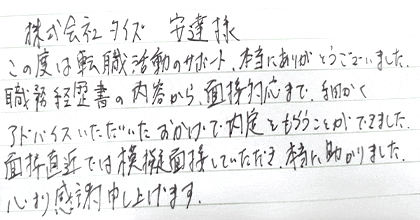 株式会社ワイズ 安達様
この度は転職活動のサポート、本当にありがとうございました。
職務経歴書の内容から、面接対応まで、細かく
アドバイスいただいたおかげで内定をもらうことができました。
面接直近では模擬面接していただき、本当に助かりました。
心より感謝申し上げます。